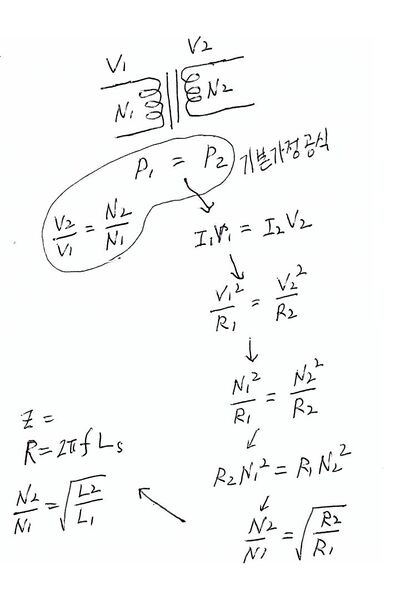 V1 V2
N1 N2
P1 = P2 기본가정공식
V2/V1 = N2/N1
I1V1 = I2V2
V1²/R1 = V2²/R2
N1²/R1 = N2²/R2
R2N1² = R1N2²
N2/N1 = √(R2/R1)
Z =
R = 2πfLs
N2/N1 = √(L2/L1)